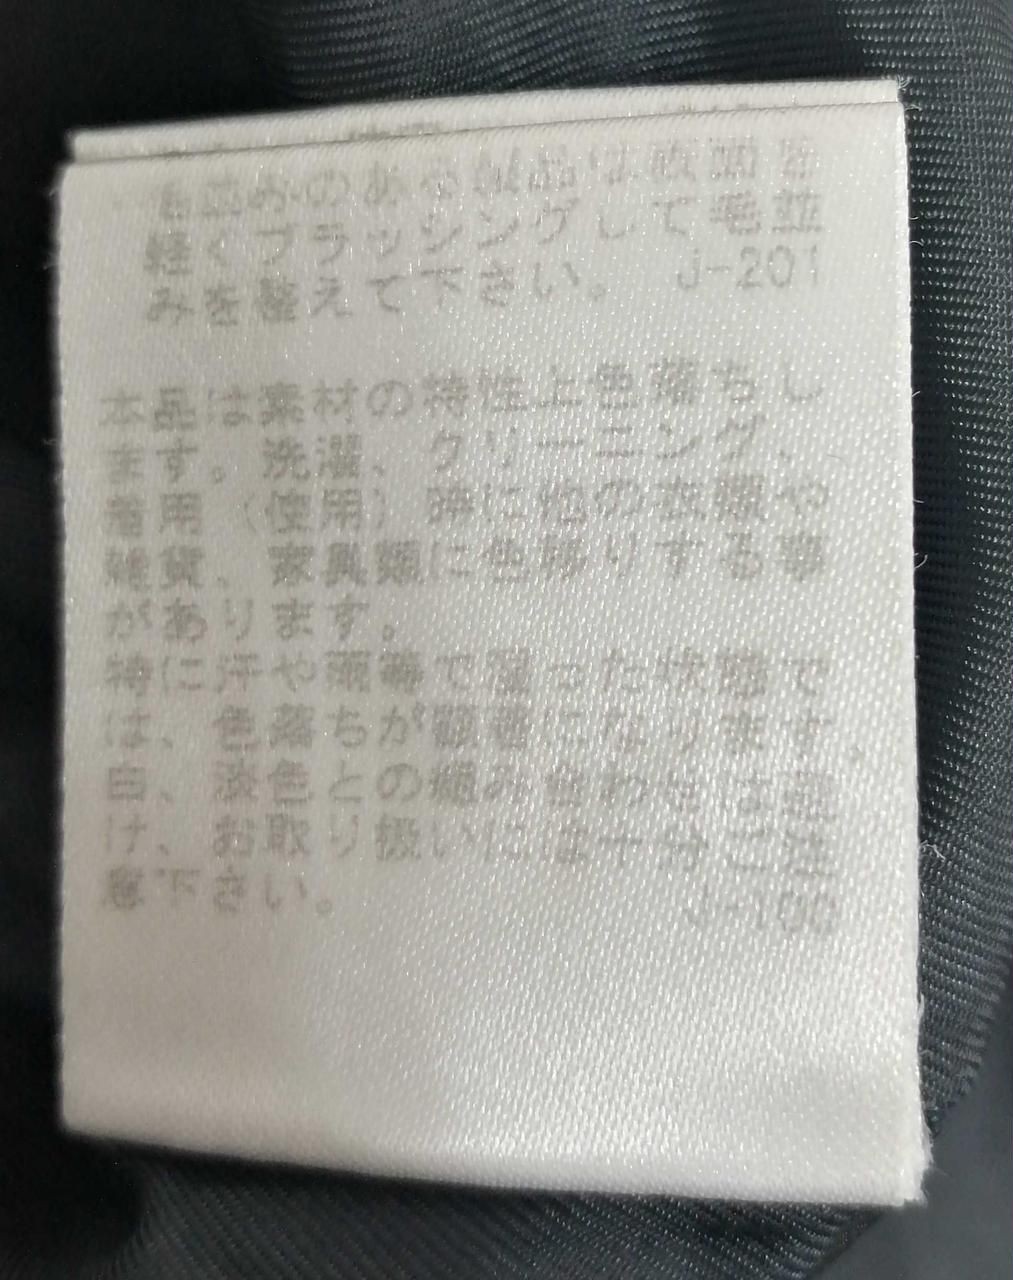 毛並みのある製品は軟
軽くブラッシングして毛並
みを整えて下さい。 J-201
本品は素材の特性上色落ちし
ます。洗濯、クリーニング、
着用（使用）時に他の衣類や
雑貨、家具類に色移りする事
があります。
特に汗や雨等で湿った状態で
は、色落ちが顕著になります
白、淡色との組み合わせは避
け、お取り扱いには十分ご注
意下さい。 J-100